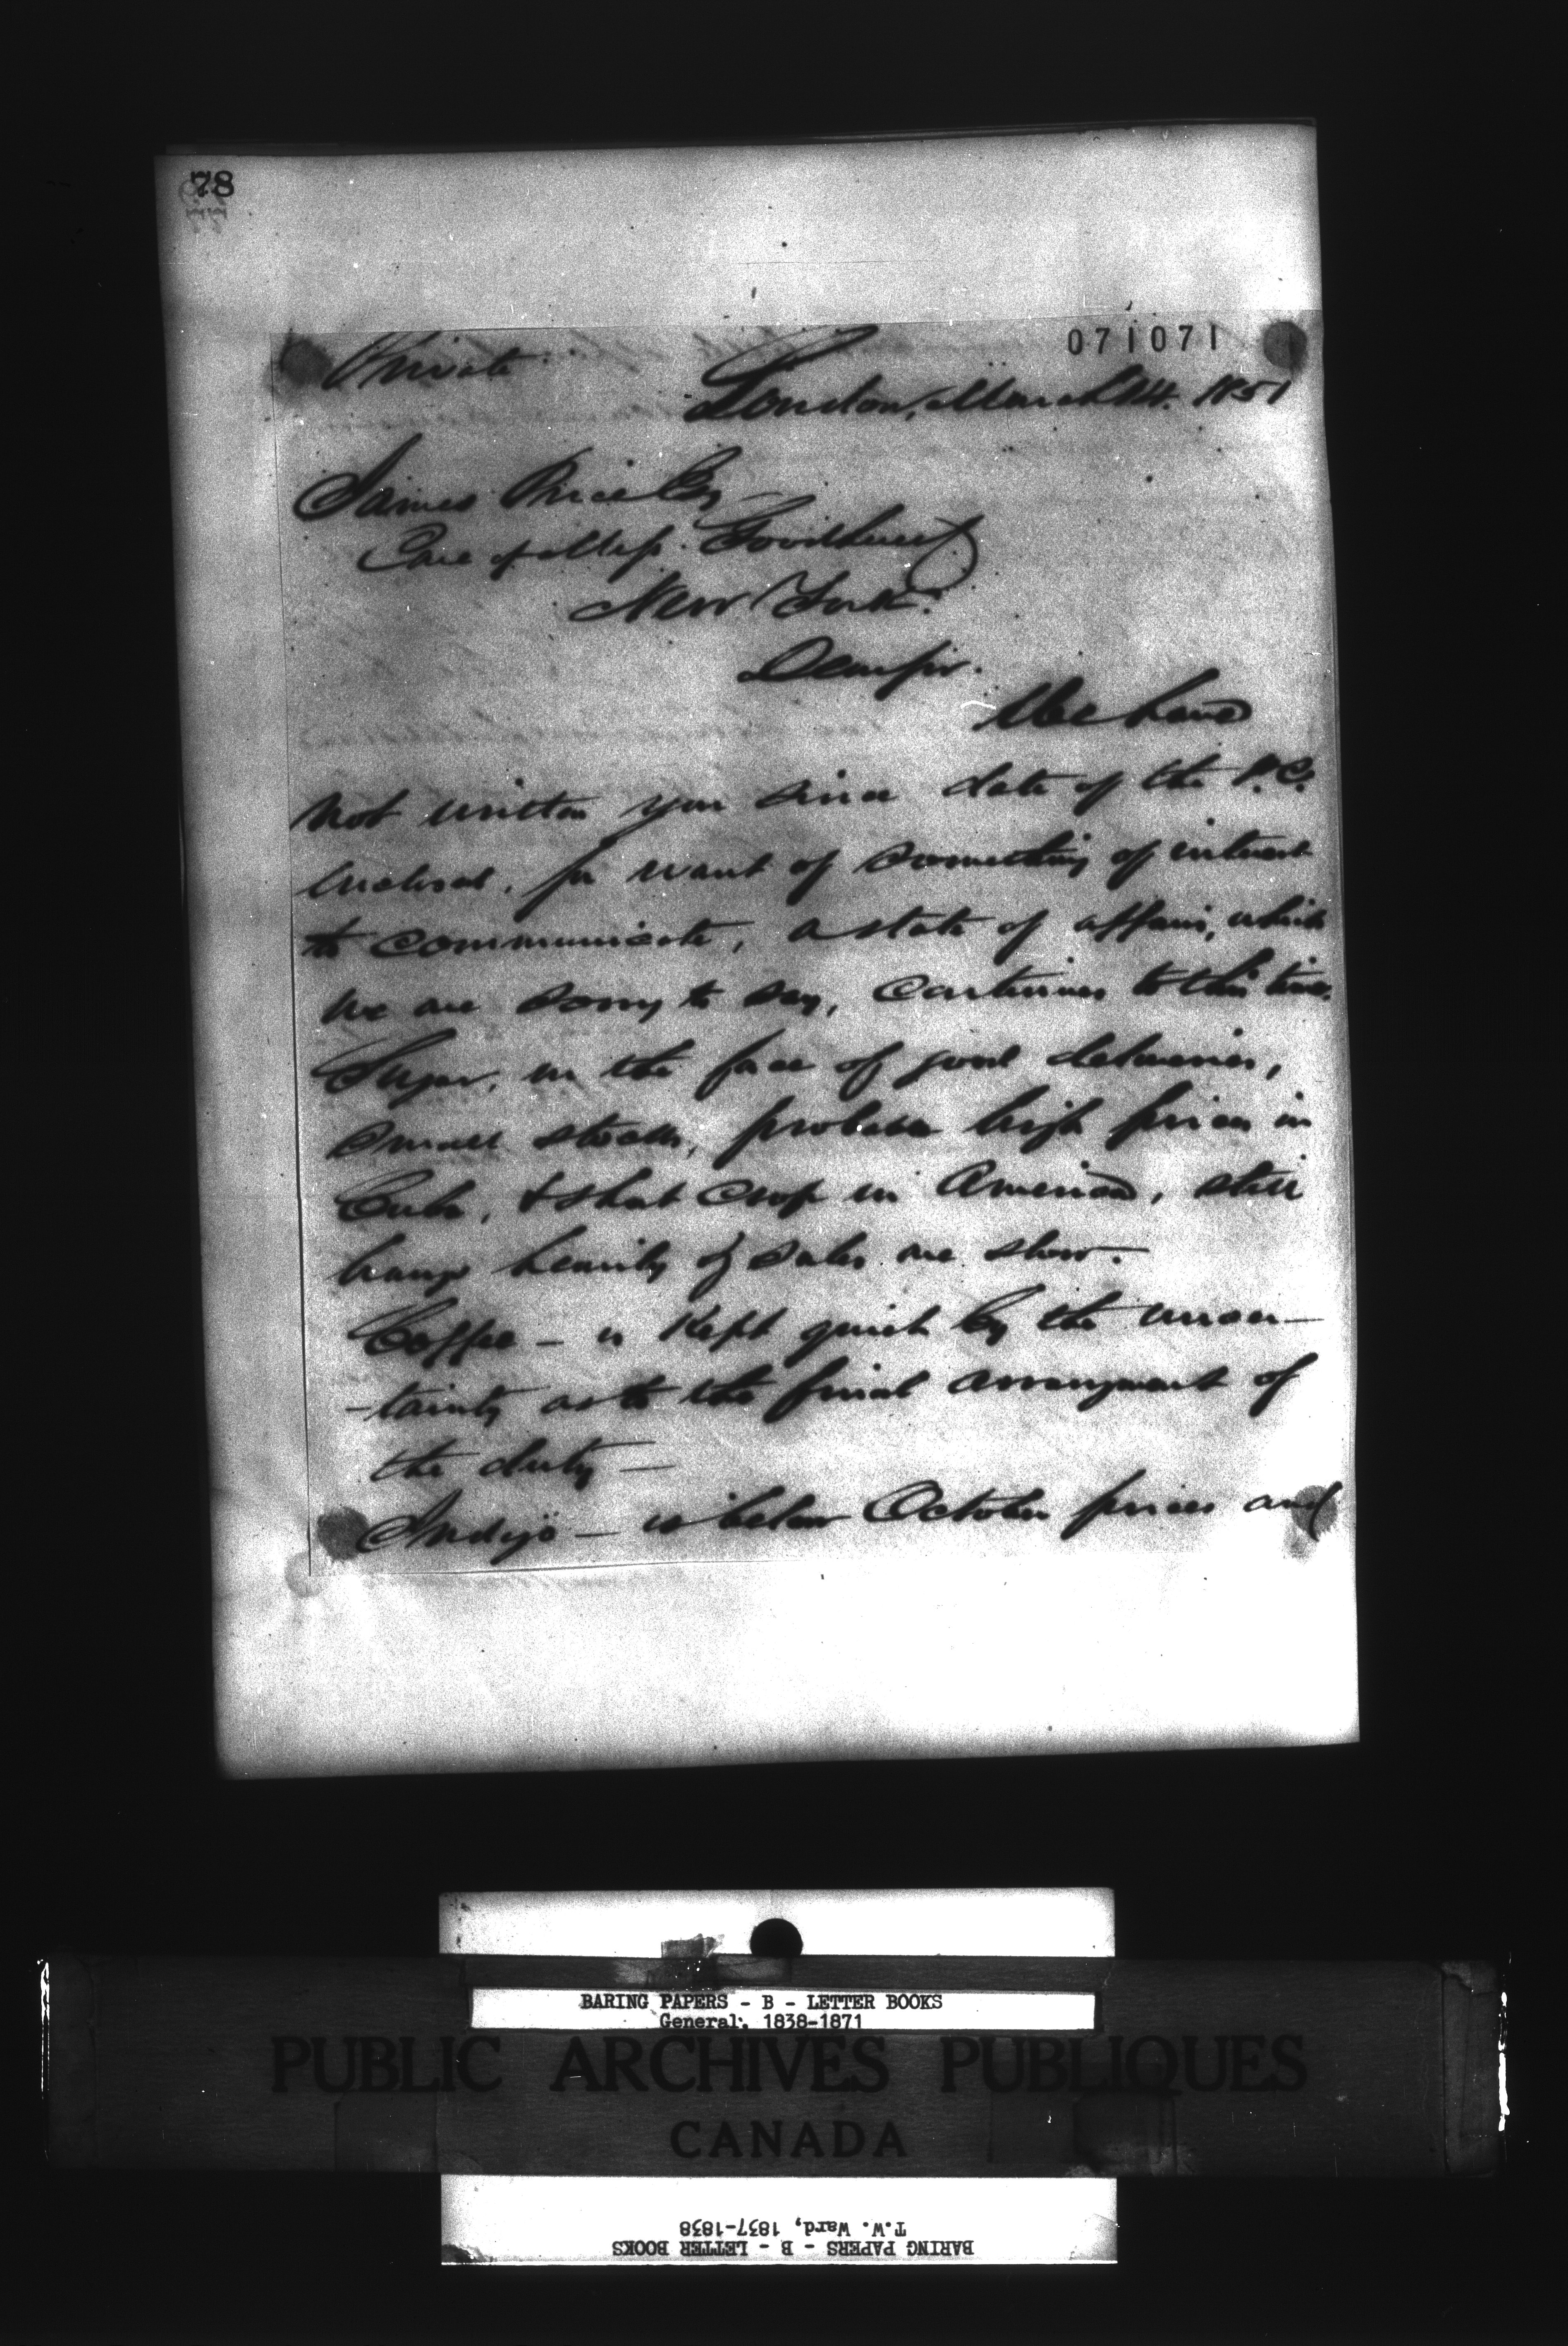 78
071071
Private
London, March 14. 1851
James Price Esq
Care of Mess. Goodhue &
New York.
Dear sir.
We have
not written you since date of the P.C.
inclosed, for want of something of interest
to communicate, a state of affairs, which
we are sorry to say, continues to this time.
Sugar, in the face of good deliveries,
small stocks, probable high prices in
Cuba, & short crop in America, still
hangs heavily & sales are slow.
Coffee — is kept quiet by the uncer-
-tainty as to the final arrangement of
the duty —
Indigo — is below October prices and
BARING PAPERS - B - LETTER BOOKS
General, 1838-1871
PUBLIC ARCHIVES PUBLIQUES
CANADA
T.W. Ward, 1837-1838
BARING PAPERS - B - LETTER BOOKS